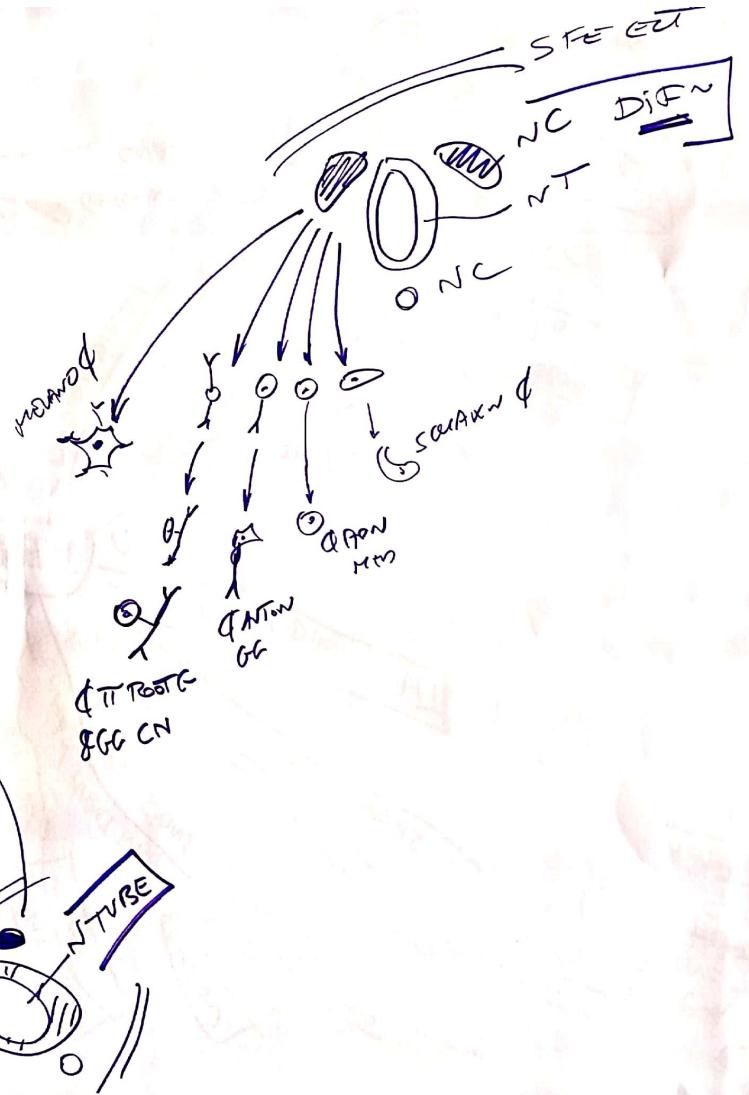 SFE ECT
NC DIFN
NT
NC
MELANO ¢
SCHAWN ¢
¢ ADN
MED
¢ ANTON
GG
¢ π ROOT G
& GG CN
N TUBE